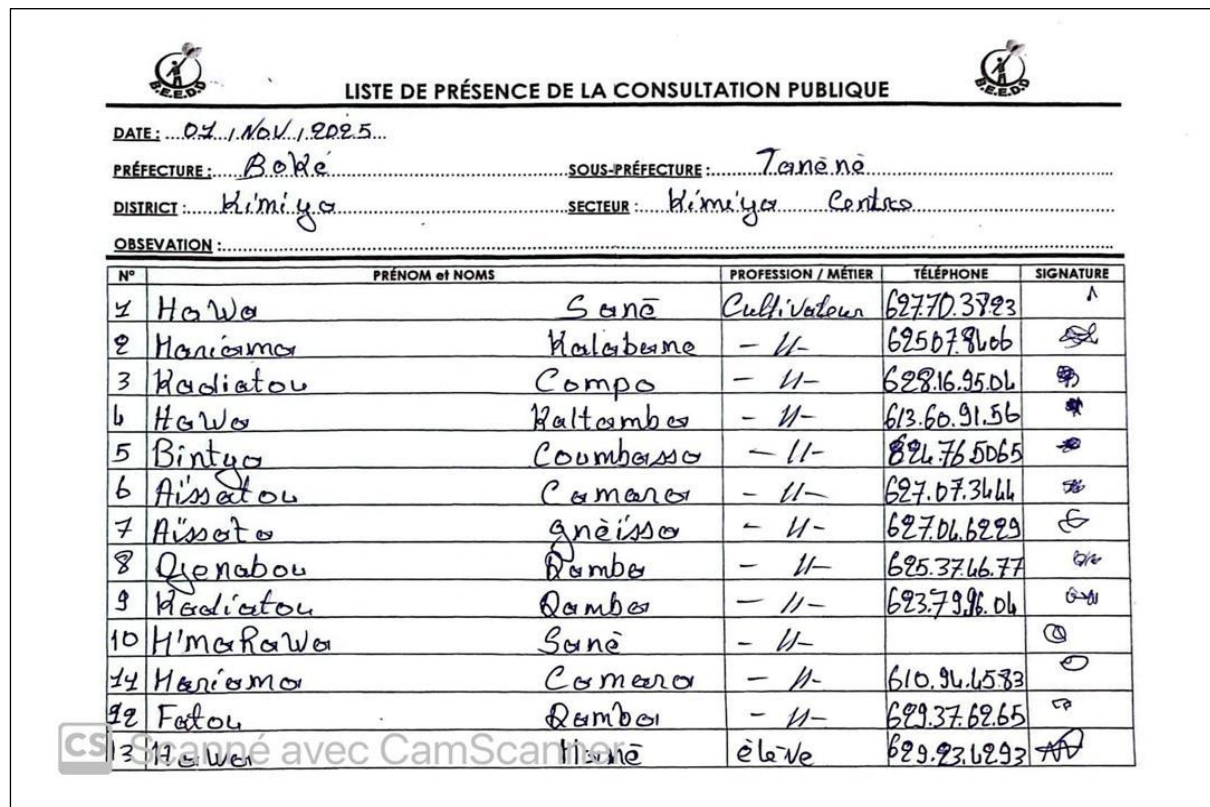 B.E.E.D.D
LISTE DE PRÉSENCE DE LA CONSULTATION PUBLIQUE
B.E.E.D.D
DATE : 01 / NOV / 2025
PRÉFECTURE : Boké SOUS-PRÉFECTURE : Tanènè
DISTRICT : Kimiya SECTEUR : Kimiya Centre
OBSEVATION :
N° PRÉNOM et NOMS PROFESSION / MÉTIER TÉLÉPHONE SIGNATURE
1 HaWa Sané Cultivateur 627.70.3823
2 Mariama Kalabane - 11- 62507.8406
3 Kadiatou Compo - 11- 628.16.95.04
4 HaWa Kaltamba - 11- 613.60.91.56
5 Bintya Coumbassa - 11- 624.76.5065
6 Aïssatou Camara - 11- 627.07.3444
7 Aïssata gnèissa - 11- 627.04.6229
8 Djenabou Damba - 11- 625.37.46.77
9 Kadiatou Damba - 11- 623.79.96.04
10 M'maRaWa Sané - 11-
11 Mariama Camara - 11- 610.94.45.83
12 Fatou Damba - 11- 629.37.62.65
13 HaWa Mané élève 629.23.4293
CS Scanné avec CamScanner